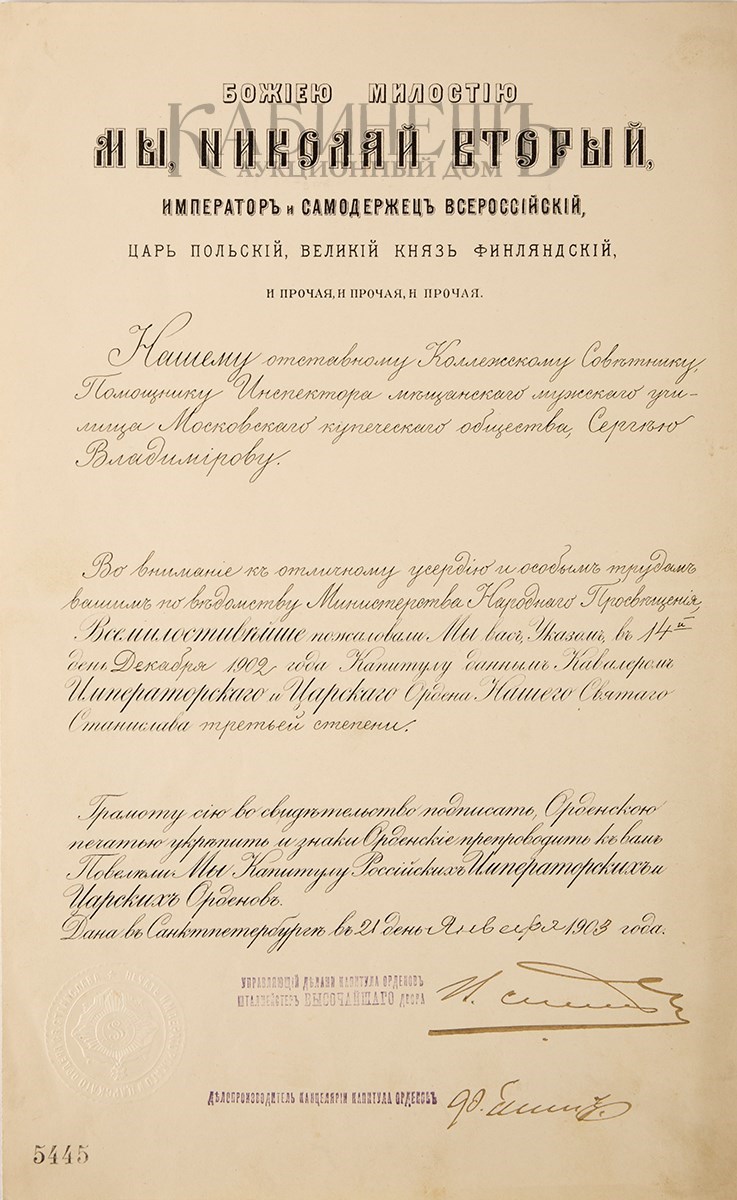 БОЖІЕЮ МИЛОСТІЮ
КАБИНЕТЪ
МЫ, НИКОЛАЙ ВТОРЫЙ,
АУКЦИОННЫЙ ДОМ
ИМПЕРАТОРЪ и САМОДЕРЖЕЦЪ ВСЕРОССІЙСКІЙ,
ЦАРЬ ПОЛЬСКІЙ, ВЕЛИКІЙ КНЯЗЬ ФИНЛЯНДСКІЙ,
И ПРОЧАЯ, И ПРОЧАЯ, И ПРОЧАЯ.
Нашему отставному Коллежскому Совѣтнику,
Помощнику Инспектора мѣщанскаго мужскаго учи-
лища Московскаго купеческаго общества, Сергѣю
Владимірову.
Во вниманіе къ отличному усердію и особымъ трудамъ
вашимъ по вѣдомству Министерства Народнаго Просвѣщенія,
Всемилостивѣйше пожаловали Мы васъ, Указомъ, въ 14й
день Декабря 1902 года Капитулу даннымъ, Кавалеромъ
Императорскаго и Царскаго Ордена Нашего Святаго
Станислава третьей степени.
Грамоту сію во свидѣтельство подписать, Орденскою
печатью укрѣпить и знаки Орденскіе препроводить къ вамъ
Повелѣли Мы Капитулу Россійскихъ Императорскихъ и
Царскихъ Орденовъ.
Дана въ Санктпетербургѣ въ 21 день Января 1903 года.
УПРАВЛЯЮЩІЙ ДѢЛАМИ КАПИТУЛА ОРДЕНОВЪ
ШТАЛМЕЙСТЕРЪ ВЫСОЧАЙШАГО ДВОРА
ДѢЛОПРОИЗВОДИТЕЛЬ КАНЦЕЛЯРІИ КАПИТУЛА ОРДЕНОВЪ
5445